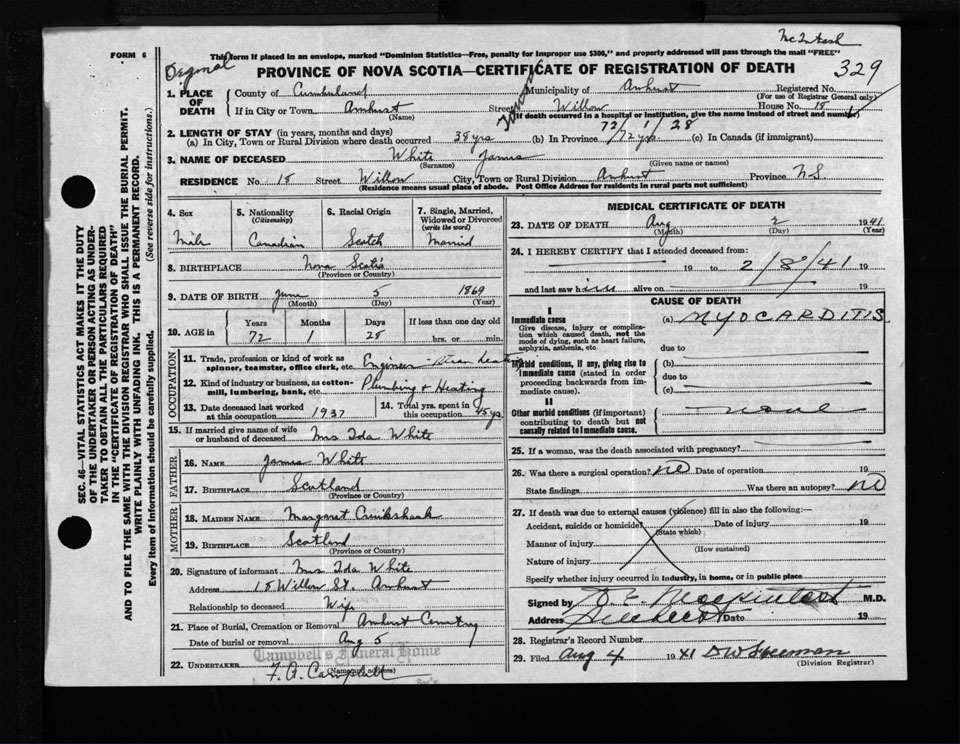 McIntosh
FORM 6
This form if placed in an envelope, marked "Dominion Statistics—Free, penalty for improper use $300," and properly addressed will pass through the mail "FREE"
Original
PROVINCE OF NOVA SCOTIA—CERTIFICATE OF REGISTRATION OF DEATH
329
1. PLACE OF DEATH
County of Cumberland Municipality of Amherst Registered No.
(For use of Registrar General only)
If in City or Town Amherst Street Willow House No. 18
(Name) If death occurred in a hospital or institution, give the name instead of street and number
72/1/28
2. LENGTH OF STAY (in years, months and days)
(a) In City, Town or Rural Division where death occurred 38 yrs (b) In Province 72 yrs (c) In Canada (if immigrant)
3. NAME OF DECEASED White James
(Surname) (Given name or names)
RESIDENCE No. 18 Street Willow City, Town or Rural Division Amherst Province N.S.
(Residence means usual place of abode. Post Office Address for residents in rural parts not sufficient)
4. Sex Male
5. Nationality (Citizenship) Canadian
6. Racial Origin Scotch
7. Single, Married, Widowed or Divorced (write the word) Married
8. BIRTHPLACE Nova Scotia
(Province or Country)
9. DATE OF BIRTH June 5 1869
(Month) (Day) (Year)
10. AGE in Years Months Days If less than one day old
72 1 28 hrs. or min.
OCCUPATION
11. Trade, profession or kind of work as spinner, teamster, office clerk, etc. Engineer
12. Kind of industry or business, as cotton-mill, lumbering, bank, etc. Plumbing & Heating
13. Date deceased last worked at this occupation 1937
14. Total yrs. spent in this occupation 45 yrs
15. If married give name of wife or husband of deceased Mrs Ida White
FATHER
16. NAME James White
17. BIRTHPLACE Scotland
(Province or Country)
MOTHER
18. MAIDEN NAME Margaret Cruikshank
19. BIRTHPLACE Scotland
(Province or Country)
20. Signature of informant Mrs Ida White
Address 18 Willow St. Amherst
Relationship to deceased Wife
21. Place of Burial, Cremation or Removal Amherst Cemetery
Date of burial or removal Aug 5
Campbell's Funeral Home
22. UNDERTAKER F. A. Campbell
(Name and address)
MEDICAL CERTIFICATE OF DEATH
23. DATE OF DEATH Aug 2 1941
(Month) (Day) (Year)
24. I HEREBY CERTIFY that I attended deceased from:
19 to 2/8/41 19
and last saw him alive on 19
CAUSE OF DEATH
I
Immediate cause (a) MYOCARDITIS
Give disease, injury or complication which caused death, not the mode of dying, such as heart failure, asphyxia, asthenia, etc.
due to
Morbid conditions, if any, giving rise to immediate cause (stated in order proceeding backwards from immediate cause).
(b)
due to
(c)
II
Other morbid conditions (if important) contributing to death but not causally related to immediate cause.
none
25. If a woman, was the death associated with pregnancy?
26. Was there a surgical operation? no Date of operation 19
State findings Was there an autopsy? NO
27. If death was due to external causes (violence) fill in also the following:—
Accident, suicide or homicide? Date of injury 19
(State which)
Manner of injury
(How sustained)
Nature of injury
Specify whether injury occurred in industry, in home, or in public place
Signed by M.D.
Address Date 19
28. Registrar's Record Number
29. Filed Aug 4 1941
(Division Registrar)
SEC. 46—VITAL STATISTICS ACT MAKES IT THE DUTY
OF THE UNDERTAKER OR PERSON ACTING AS UNDERTAKER TO OBTAIN ALL THE PARTICULARS REQUIRED
IN THE "CERTIFICATE OF REGISTRATION OF DEATH"
AND TO FILE THE SAME WITH THE DIVISION REGISTRAR WHO SHALL ISSUE THE BURIAL PERMIT.
WRITE PLAINLY WITH UNFADING INK. THIS IS A PERMANENT RECORD.
Every item of information should be carefully supplied. (See reverse side for instructions.)